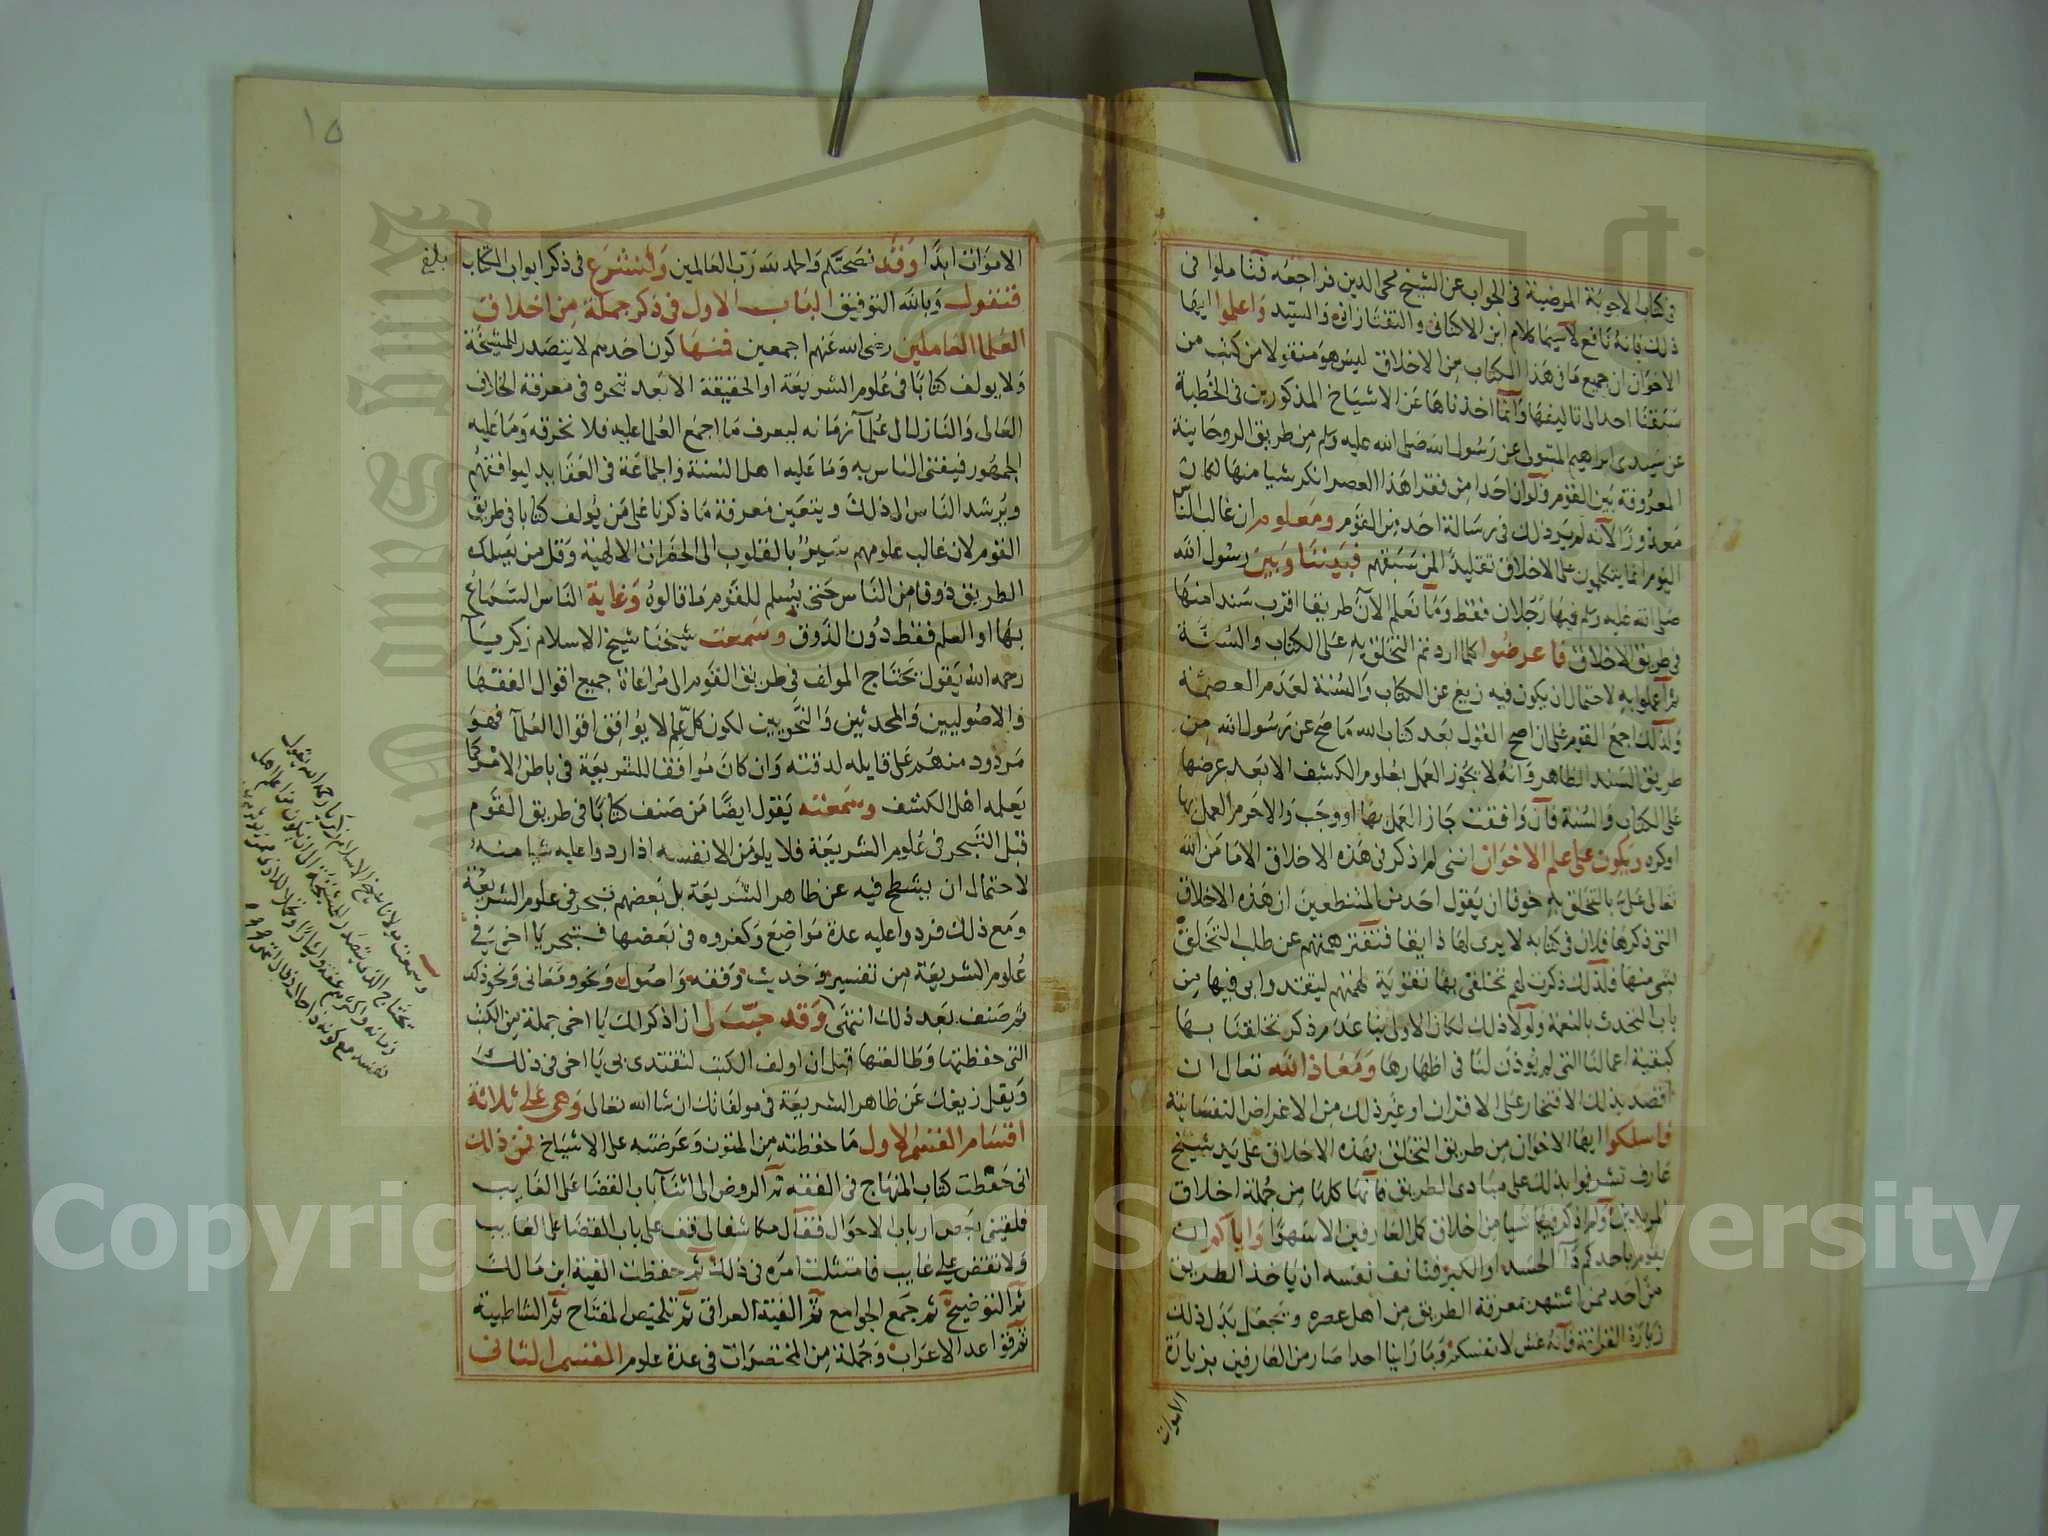 في كتاب الاجوبة المرضية في الجواب عن الشيخ محي الدين فراجعه فتاملوا في
ذلك فانه نافع لاسيما كلام ابن الاكفاني والتفتازاني والسيد واعلموا ايها
الاخوان ان جميع ما في هذا الكتاب من الاخلاق ليس هو منقولا من كتب من
سبقنا احد الى تاليفها وانما اخذناها عن الاشياخ المذكورين في الخطبة
عن سيدى ابراهيم المتبولي عن رسول الله صلى الله عليه وسلم من طريق الروحانية
المعروفة بين القوم ولوان احدا من فقرا هذا العصر انكر شيا منها لكان
معذورا لانه لم ير ذلك في رسالة احد من القوم ومعلوم ان غالب الناس
اليوم انما يتكلمون على الاخلاق تقليدا لمن سبقهم فبيننا وبين رسول الله
صلى الله عليه وسلم فيها رجلان فقط وما نعلم الآن طريقا اقرب سندا منها
في طريق الاخلاق فاعرضوا كلما اردتم التخلق به على الكتاب والسنة
ثم اعملوا به لاحتمال ان يكون فيه زيغ عن الكتاب والسنة لعدم العصمة
ولذلك اجمع القوم على ان اصح القول بعد كتاب الله ما صح عن رسول الله من
طريق السند الظاهر وانه لا يجوز العمل بعلوم الكشف الا بعد عرضها
على الكتاب والسنة فان وافقت جاز العمل بها او وجب والا حرم العمل بها
اوكره ويكون على علم الاخوان انني لم اذكر في هذه الاخلاق الا ما من الله
تعالى علي بالتخلق به خوفا ان يقول احد من المتنطعين ان هذه الاخلاق
التي ذكرها فلان في كتابه لا يرى لها ذايقا فتفتر همتهم عن طلب التخلق
بشي منها فلذلك ذكرت لهم تخلقي بها تقوية لهمتهم ليقتدوا بي فيها من
باب التحدث بالنعمة ولولا ذلك لكان الاولى بنا عدم ذكر تخلقنا بها
كبقية اعمالنا التي لم يوذن لنا في اظهارها ومعاذ الله تعالى ان
اقصد بذلك الافتخار على الاقران او غير ذلك من الاغراض النفسانية
فاسلكوا ايها الاخوان من طريق التخلق بهذه الاخلاق على يد شيخ
عارف تشرفوا بذلك على مبادى الطريق فانها كلها من جملة اخلاق
المريدين ولم اذكر فيها شيا من اخلاق كمل العارفين الا سهوا واياكم ان
يقوم باحدكم دآ الحسد او الكبر فتانف نفسه ان ياخذ الطريق
من احد ممن اشتهر بمعرفة الطريق من اهل عصره وتجعل بدل ذلك
زيارة القرافة فانه غش لانفسكم وما راينا احدا صار من العارفين بزيارة
الاموات
١٥
الاموات ابدا وقد نصحتكم والحمد لله رب العالمين ولنشرع في ذكر ابواب الكتاب
بلغ
فنقول وبالله التوفيق الباب الاول في ذكر جملة من اخلاق
العلما العاملين رضي الله عنهم اجمعين فمنها كون احدهم لا يتصدر للمشيخة
ولا يولف كتابا في علوم الشريعة او الحقيقة الا بعد تبحره في معرفة الخلاف
العالى والنازل الى علمآ زمانه ليعرف ما اجمع العلما عليه فلا نخرقه وما عليه
الجمهور فيفتي الناس به وما عليه اهل السنة والجماعة في العقايد ليوافقهم
ويرشد الناس الى ذلك ويتعين معرفة ما ذكرنا على من يولف كتابا في طريق
القوم لان غالب علومهم سير بالقلوب الى الحضرات الالهية وقل من يسلك
الطريق ذوقا من الناس حتى يسلم للقوم ما قالوه وغاية الناس السماع
بها او العلم فقط دون الذوق وسمعت شيخنا شيخ الاسلام زكريآ
رحمه الله يقول يحتاج المولف في طريق القوم الى مراعاة جميع اقوال الفقها
والاصوليين والمحدثين والنحويين لكون كل علم لا يوافق اقوال العلمآ فهو
مردود منهم على قايله لدقته وان كان موافقا للشريعة في باطن الامر كما
يعلمه اهل الكشف وسمعته يقول ايضا من صنف كتابا في طريق القوم
قبل التبحر في علوم الشريعة فلا يلومن الا نفسه اذا ردوا عليه شيا منه
لاحتمال ان يشطح فيه عن ظاهر الشريعة بل بعضهم تبحر في علوم الشريعة
ومع ذلك فردوا عليه عدة مواضع وكفروه في بعضها فتبحر يا اخي في
علوم الشريعة من تفسير وحديث وفقه واصول ونحو ومعاني ونحو ذلك
ثم صنف بعد ذلك انتهى وقد حبب لى ان اذكر لك يا اخي جملة من الكتب
التي حفظتها وطالعتها قبل ان اولف الكتب لتقتدى بى يا اخى في ذلك
ويقل زيغك عن ظاهر الشريعة في مولفاتك ان شا الله تعالى وهى على ثلاثة
اقسام القسم الاول ما حفظته من المتون وعرضته على الاشياخ فمن ذلك
انى حفظت كتاب المنهاج في الفقه ثم الروض الى اثنآ باب القضا على الغايب
فلقيني بعض ارباب الاحوال فقال مكاشفا لى قف على باب القضا على الغايب
ولا تقض على غايب فامتثلت امره في ذلك ثم حفظت الفية ابن مالك
ثم التوضيح ثم جمع الجوامع ثم الفية العراقي ثم تلخيص المفتاح ثم الشاطبية
ثم قواعد الاعراب وجملة من المختصرات في عدة علوم القسم الثاني
وسمعت مولانا شيخ الاسلام زكريا رحمه الله يقول
يحتاج الذى يتصدر للمشيخة الى ان يكون من اعلم اهل